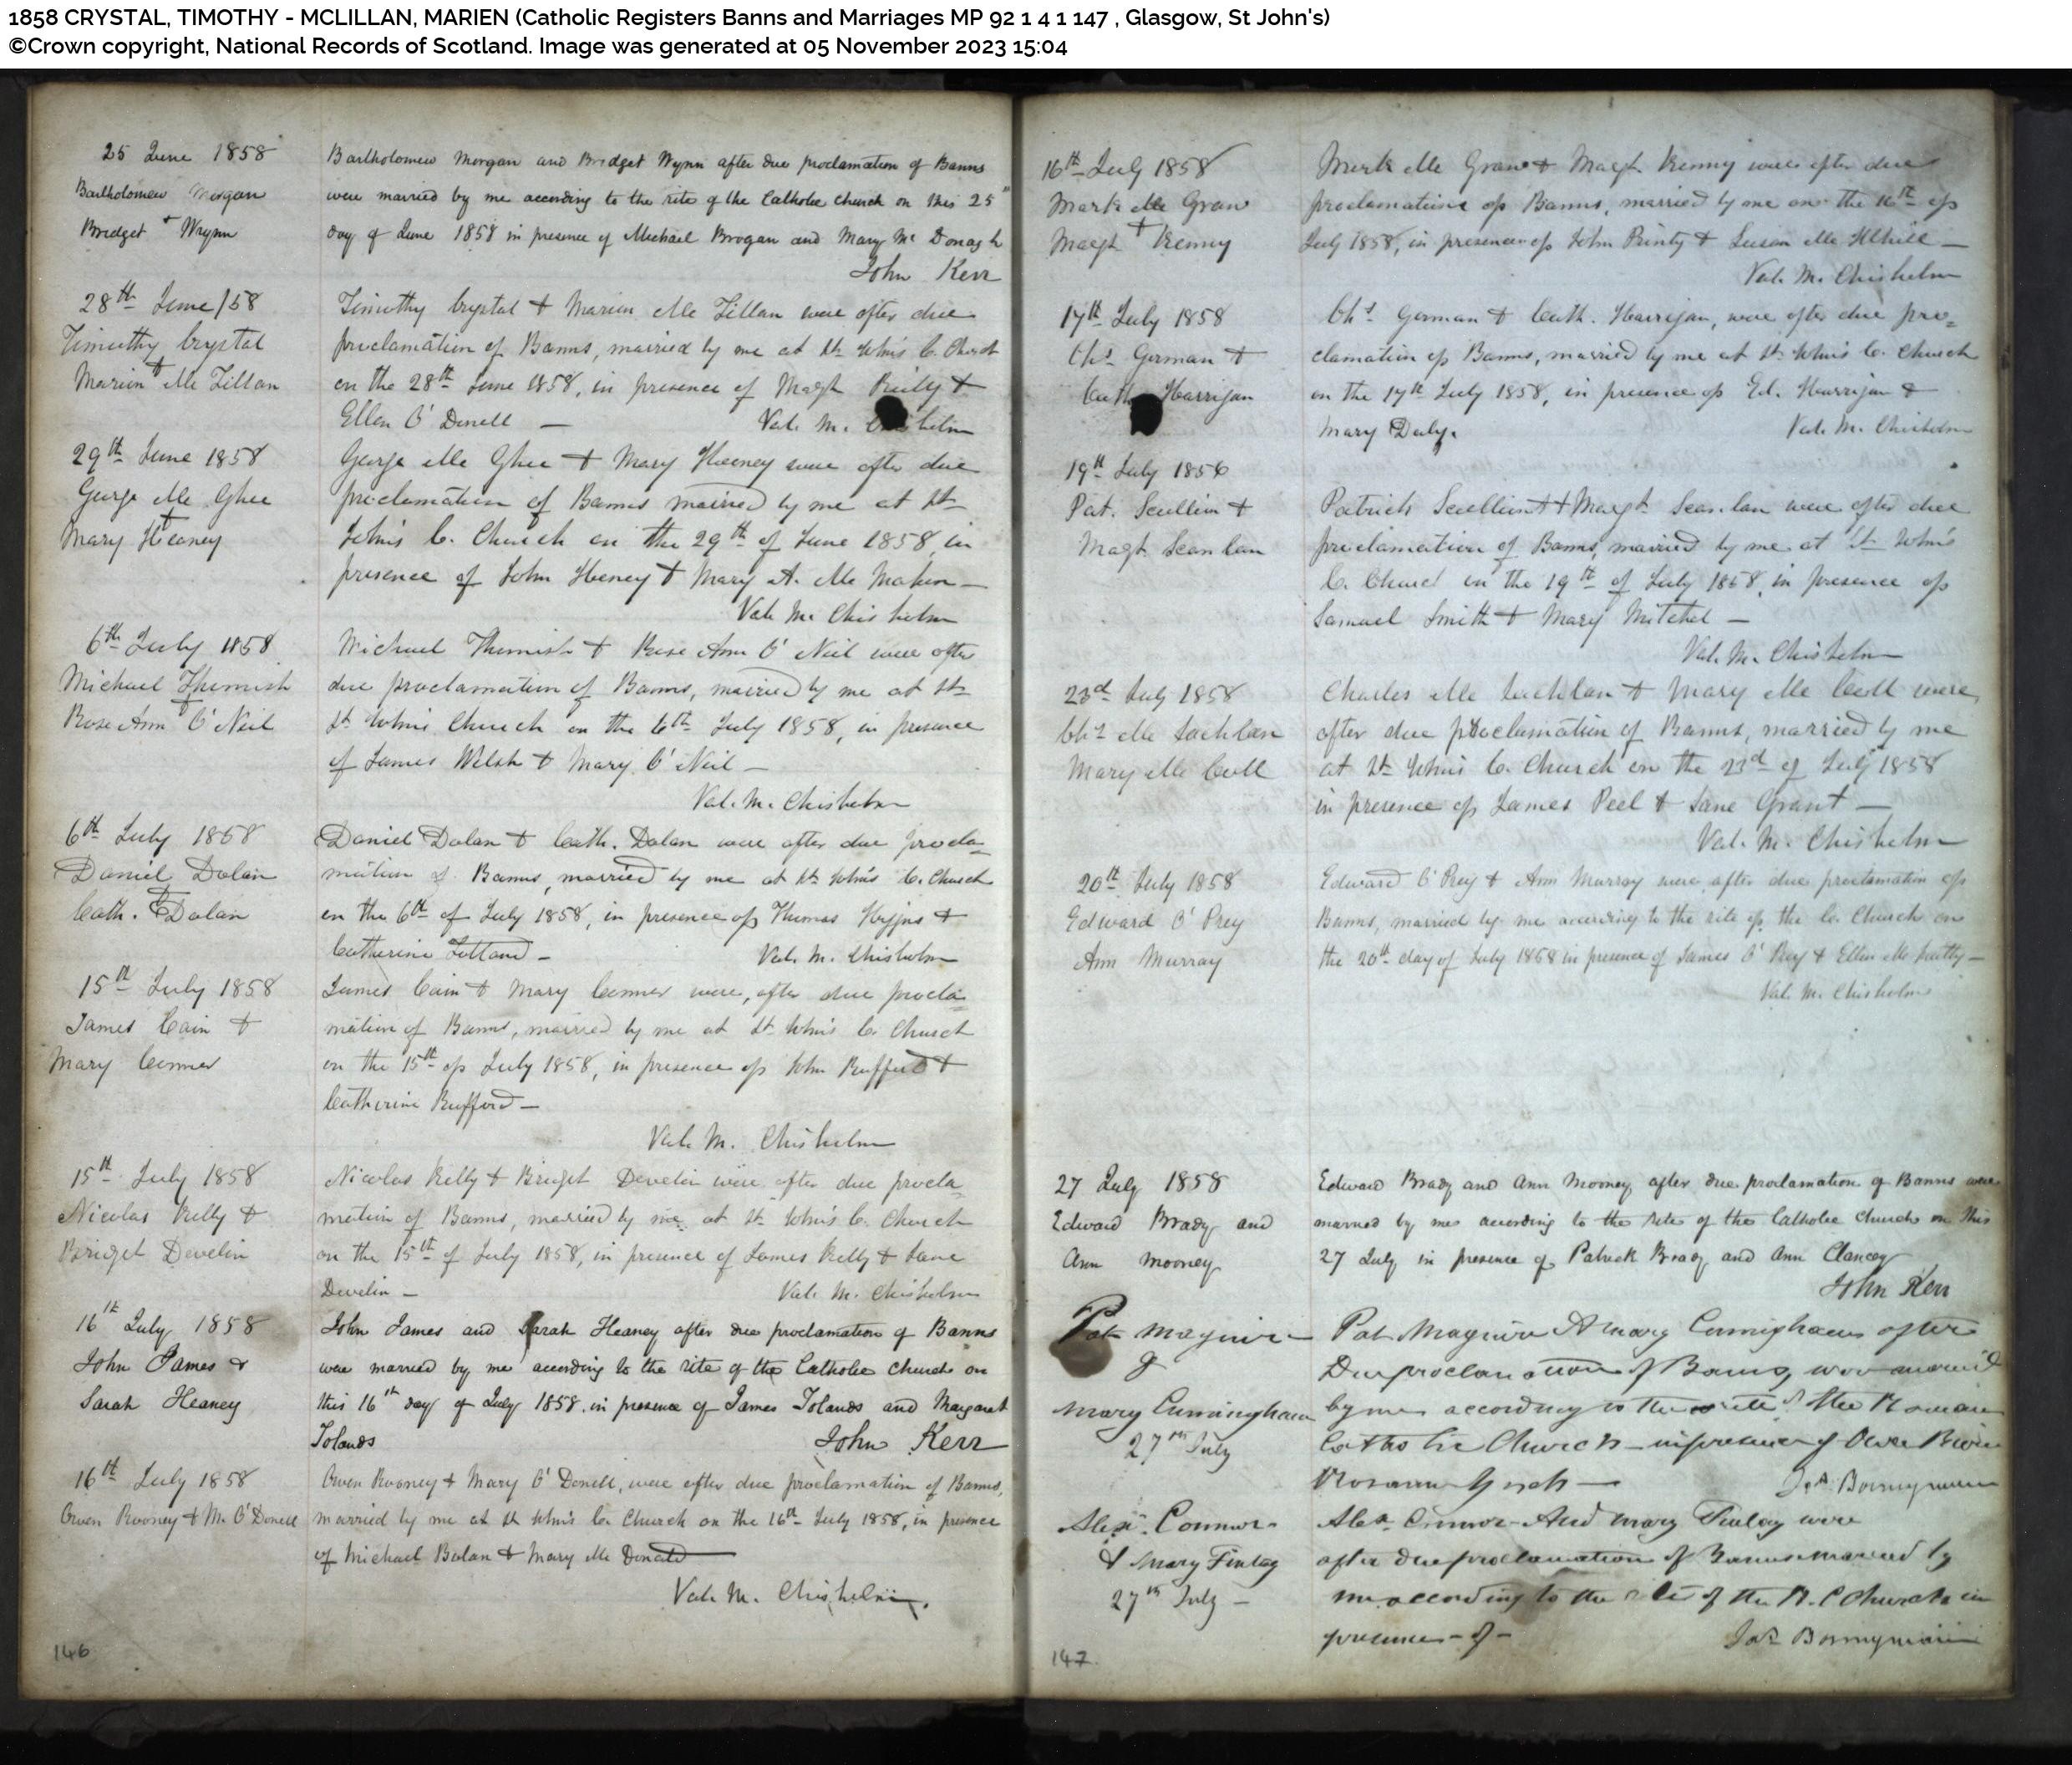 1858 CRYSTAL, TIMOTHY - MCLILLAN, MARIEN (Catholic Registers Banns and Marriages MP 92 1 4 1 147 , Glasgow, St John's)
©Crown copyright, National Records of Scotland. Image was generated at 05 November 2023 15:04
25 June 1858
Bartholomew Morgan
+
Bridget Wynn
Bartholomew Morgan and Bridget Wynn after due proclamation of Banns
were married by me according to the rite of the Catholic church on this 25
day of June 1858 in presence of Michael Brogan and Mary Mc Donagh
John Kerr
28th June/58
Timothy Crystal
+
Marien Mc Lillan
Timothy Crystal + Marien Mc Lillan were after due
proclamation of Banns, married by me at St John's C. Church
on the 28th June 1858, in presence of Magt Reily +
Ellen O'Donell —
Val. M. Chisholm
29th June 1858
George Mc Ghee
+
Mary Heaney
George Mc Ghee + Mary Heeney were after due
proclamation of Banns married by me at St
John's C. Church on the 29th of June 1858, in
presence of John Heney + Mary A. Mc Mahon —
Val. M. Chisholm
6th July 1858
Michael
+
Rose Ann O'Neil
Michael + Rose Ann O'Neil were after
due proclamation of Banns, married by me at St
St John's Church on the 6th July 1858, in presence
of James Welsh + Mary O'Neil —
Val. M. Chisholm
6th July 1858
Daniel Dolan
+
Cath. Dolan
Daniel Dolan + Cath. Dolan were after due procla=
mation of Banns, married by me at St John's C. Church
on the 6th of July 1858, in presence of Thomas +
Catherine —
Val. M. Chisholm
15th July 1858
James Cain +
Mary Conner
James Cain + Mary Conner were, after due procla=
mation of Banns, married by me at St John's C. Church
on the 15th of July 1858, in presence of John Rufford +
Catherine Rufford —
Val. M. Chisholm
15th July 1858
Nicolas Kelly +
Bridget Develin
Nicolas Kelly + Bridget Develin were after due procla=
mation of Banns, married by me at St John's C. Church
on the 15th of July 1858, in presence of James Kelly + Jane
Develin —
Val. M. Chisholm
16th July 1858
John James &
Sarah Heaney
John James and Sarah Heaney after due proclamation of Banns
were married by me according to the rite of the Catholic church on
this 16th day of July 1858 in presence of James Tolands and Margaret
Tolands
John Kerr
16th July 1858
Owen Rooney + M. O'Donell
Owen Rooney + Mary O'Donell, were after due proclamation of Banns,
married by me at St John's C. Church on the 16th July 1858, in presence
of Michael Bolan + Mary Mc Donald
Val. M. Chisholm.
146
16th July 1858
Mark Mc Gran
+
Magt Kenny
Mark Mc Gran + Magt Kenny were after due
proclamation of Banns, married by me on the 16th of
July 1858, in presence of John Printy + Susan Mc —
Val. M. Chisholm
17th July 1858
Chs Gorman +
Cath Harrigan
Chs Gorman + Cath. Harrigan, were after due pro=
clamation of Banns, married by me at St John's C. Church
on the 17th July 1858, in presence of Ed. Harrigan +
Mary Daly.
Val. M. Chisholm
19th July 1858
Pat. Scullion +
Magt Scanlan
Patrick Scullion + Magt Scanlan were after due
proclamation of Banns, married by me at St John's
C. Church on the 19th of July 1858, in presence of
Samuel Smith + Mary Mitchel —
Val. M. Chisholm
23d July 1858
Chs Mc Lachlan
Mary Mc Coll
Charles Mc Lachlan + Mary Mc Coll were
after due proclamation of Banns, married by me
at St John's C. Church on the 23d of July 1858
in presence of James Peel + Jane Grant —
Val. M. Chisholm
20th July 1858
Edward O'Prey
Ann Murray
Edward O'Prey + Ann Murray were after due proclamation of
Banns, married by me according to the rite of the C. Church on
the 20th day of July 1858 in presence of James O'Prey + Ellen Mc —
Val. M. Chisholm
27 July 1858
Edward Brady and
Ann Mooney
Edward Brady and Ann Mooney after due proclamation of Banns were
married by me according to the rite of the Catholic church on this
27 July in presence of Patrick Brady and Ann Clancey
John Kerr
Pat Maguire
&
Mary Cunningham
27th July
Pat Maguire & Mary Cunningham after
Due proclamation of Banns, were married
by me according to the rite of the Roman
Catholic Church in presence of Owen
Rosanna Lynch —
Jas. Bonnyman
Alexr. Connor
& Mary Finlay
27th July —
Alex Connor And Mary Finlay were
after due proclamation of Banns married by
me according to the rite of the R. C Church in
presence - of -
Jas. Bonnyman
147